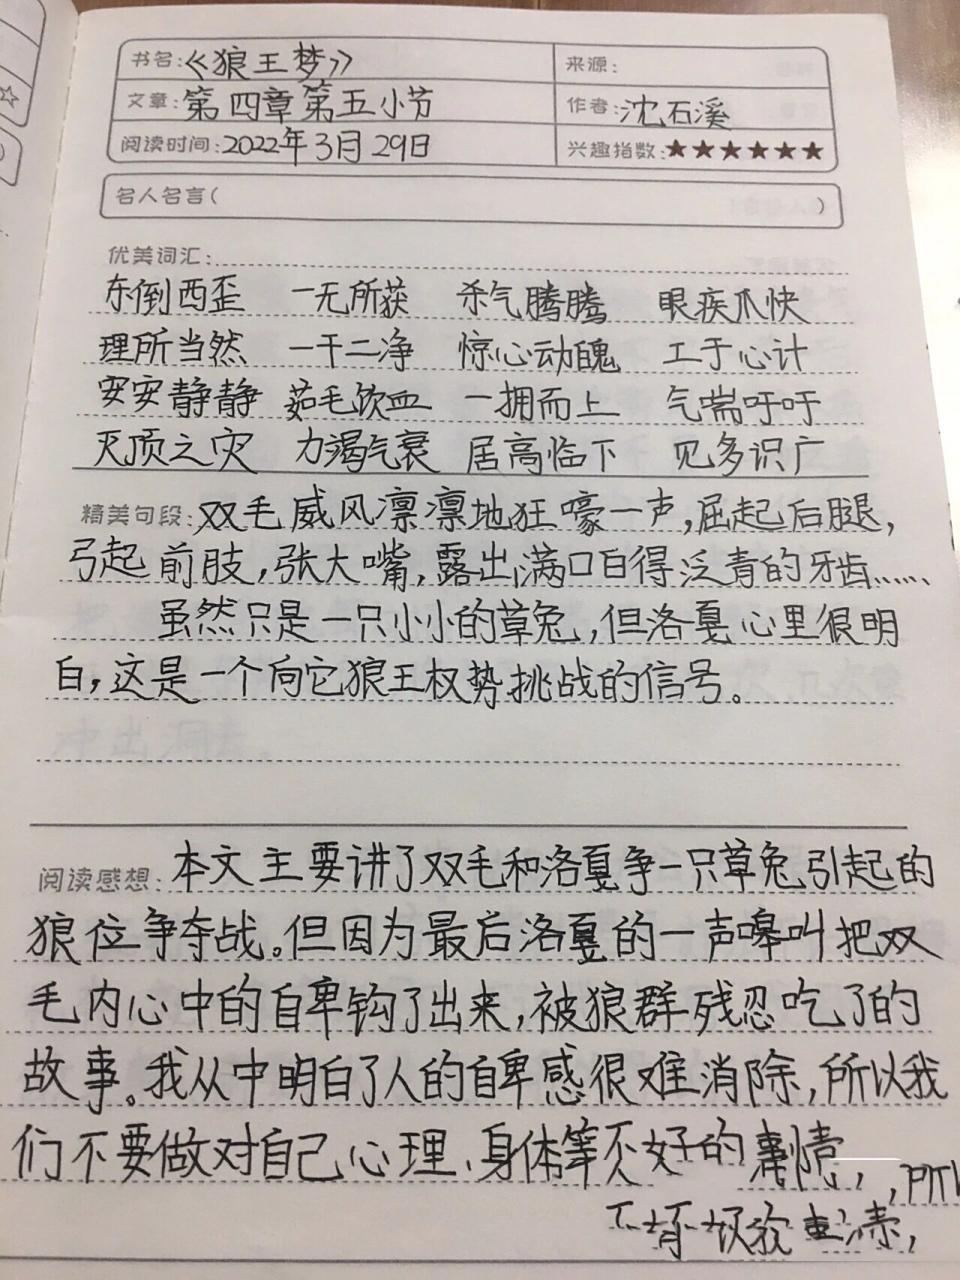 书名:《狼王梦》 来源:
文章:第四章第五小节 作者:沈石溪
阅读时间:2022年3月29日 兴趣指数:★★★★★★
名人名言( )
优美词汇:
东倒西歪 一无所获 杀气腾腾 眼疾爪快
理所当然 一干二净 惊心动魄 工于心计
安安静静 茹毛饮血 一拥而上 气喘吁吁
灭顶之灾 力竭气衰 居高临下 见多识广
精美句段:双毛威风凛凛地狂嚎一声,屈起后腿,
引起前肢,张大嘴,露出满口白得泛青的牙齿……
虽然只是一只小小的草兔,但洛戛心里很明
白,这是一个向它狼王权势挑战的信号。
阅读感想:本文主要讲了双毛和洛戛争一只草兔引起的
狼位争夺战。但因为最后洛戛的一声嗥叫把双
毛内心中的自卑钩了出来,被狼群残忍吃了的
故事。我从中明白了人的自卑感很难消除,所以我
们不要做对自己心理、身体等不好的事情,